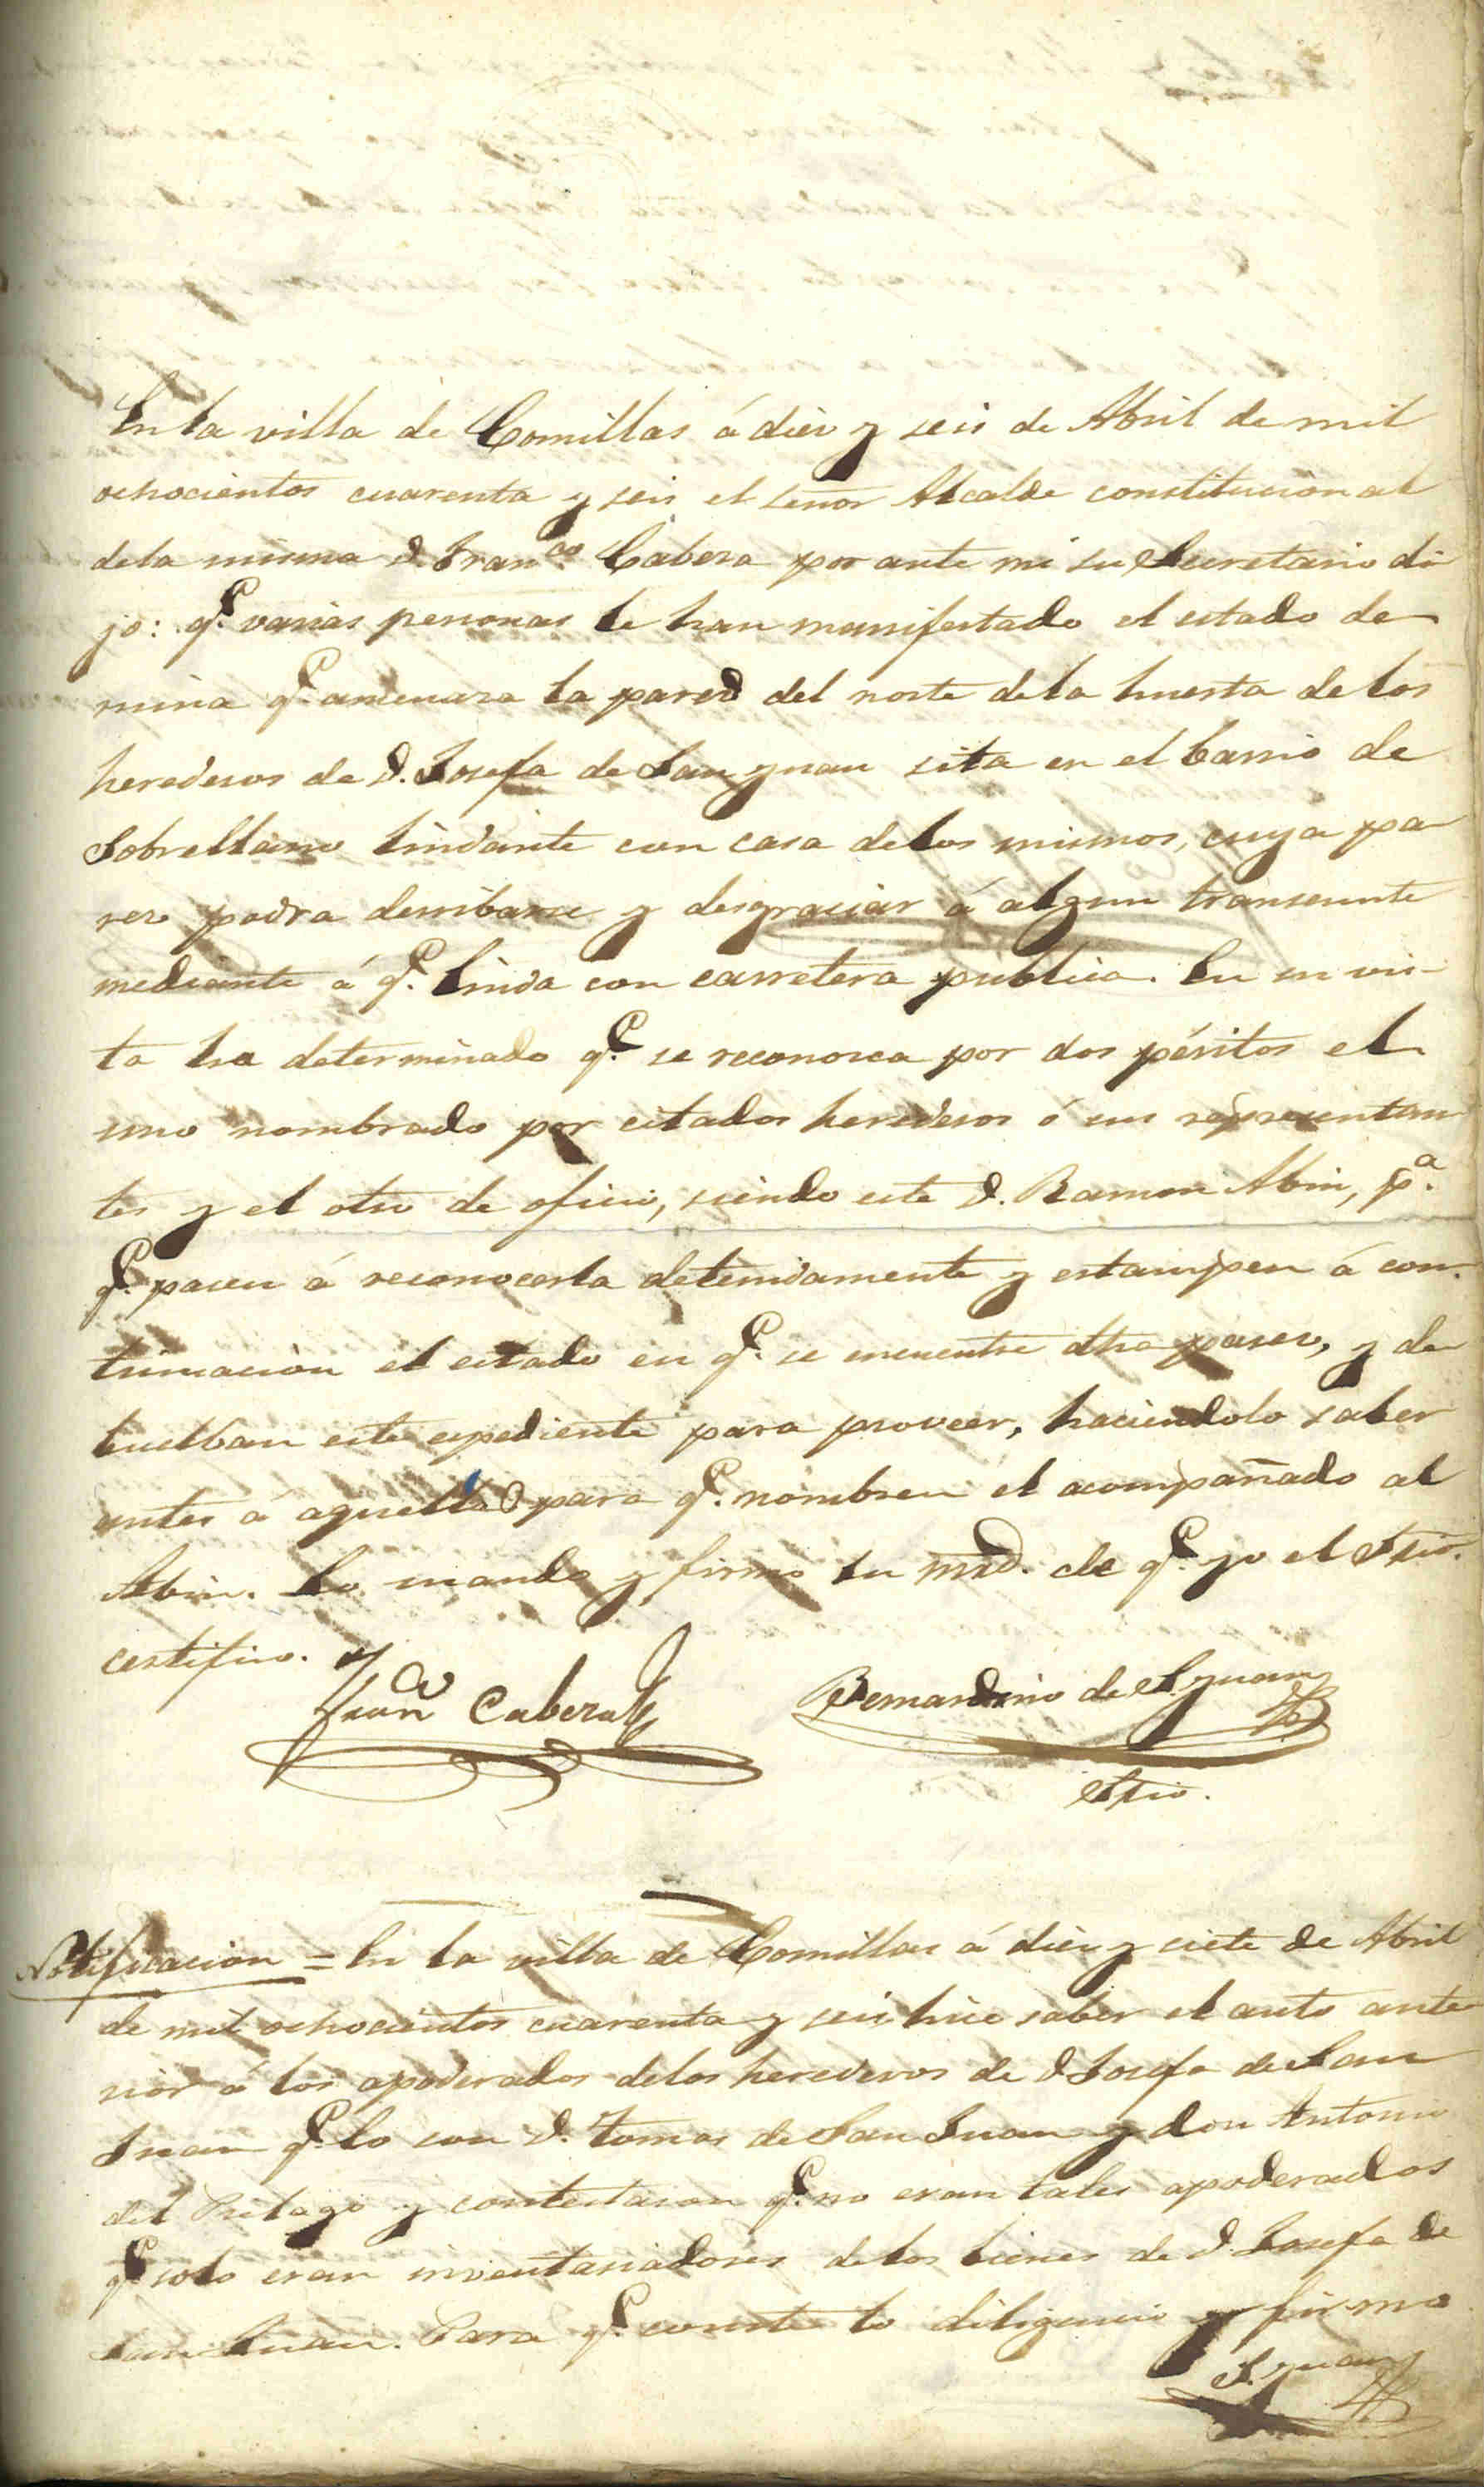 En la villa de Comillas á diez y seis de Abril de mil
ochocientos cuarenta y seis el señor Alcalde constitucional
dela misma D. Fran.co Cabeza por ante mi su Secretario di
jo: q.e varias personas le han manifestado el estado de
ruina q.e amenaza la pared del norte dela huerta delos
herederos de D. Josefa de San Juan sita en el barrio de
Sobrellano lindante con casa delos mismos, cuya pa
rez podra derribarse y desgraciar á algun transeunte
mediante á q.e linda con carretera publica. En su vis-
ta ha determinado q.e se reconosca por dos péritos el
uno nombrado por citados herederos ó sus representan
tes y el otro de oficio, siendo este D. Ramon Abin, p.a
q.e pasen á reconocerla detenidamente y estampen á con-
tinuacion el estado en q.e se encuentre dha parez, y de
buelban este espediente para proveer, haciendolo saber
antes á aquellos para q.e nombren el acompañado al
Abin. Lo mando y firmo su mrd. de q.e yo el Srio.
certifico.
Fran.co Cabeza
Bernardino de S. Juan
Srio.
Notificacion = En la villa de Comillas á diez y siete de Abril
de mil ochocientos cuarenta y seis hice saber el auto ante
rior á los apoderados delos herederos de D Josefa de San
Juan q.e lo son D. Tomas de San Juan y don Antonio
del Pielago y contestaron q.e no eran tales apoderados
q.e solo eran inventariadores delos bienes de D. Josefa de
San Juan. Para q.e conste lo diligencio y firmo
S. Juan